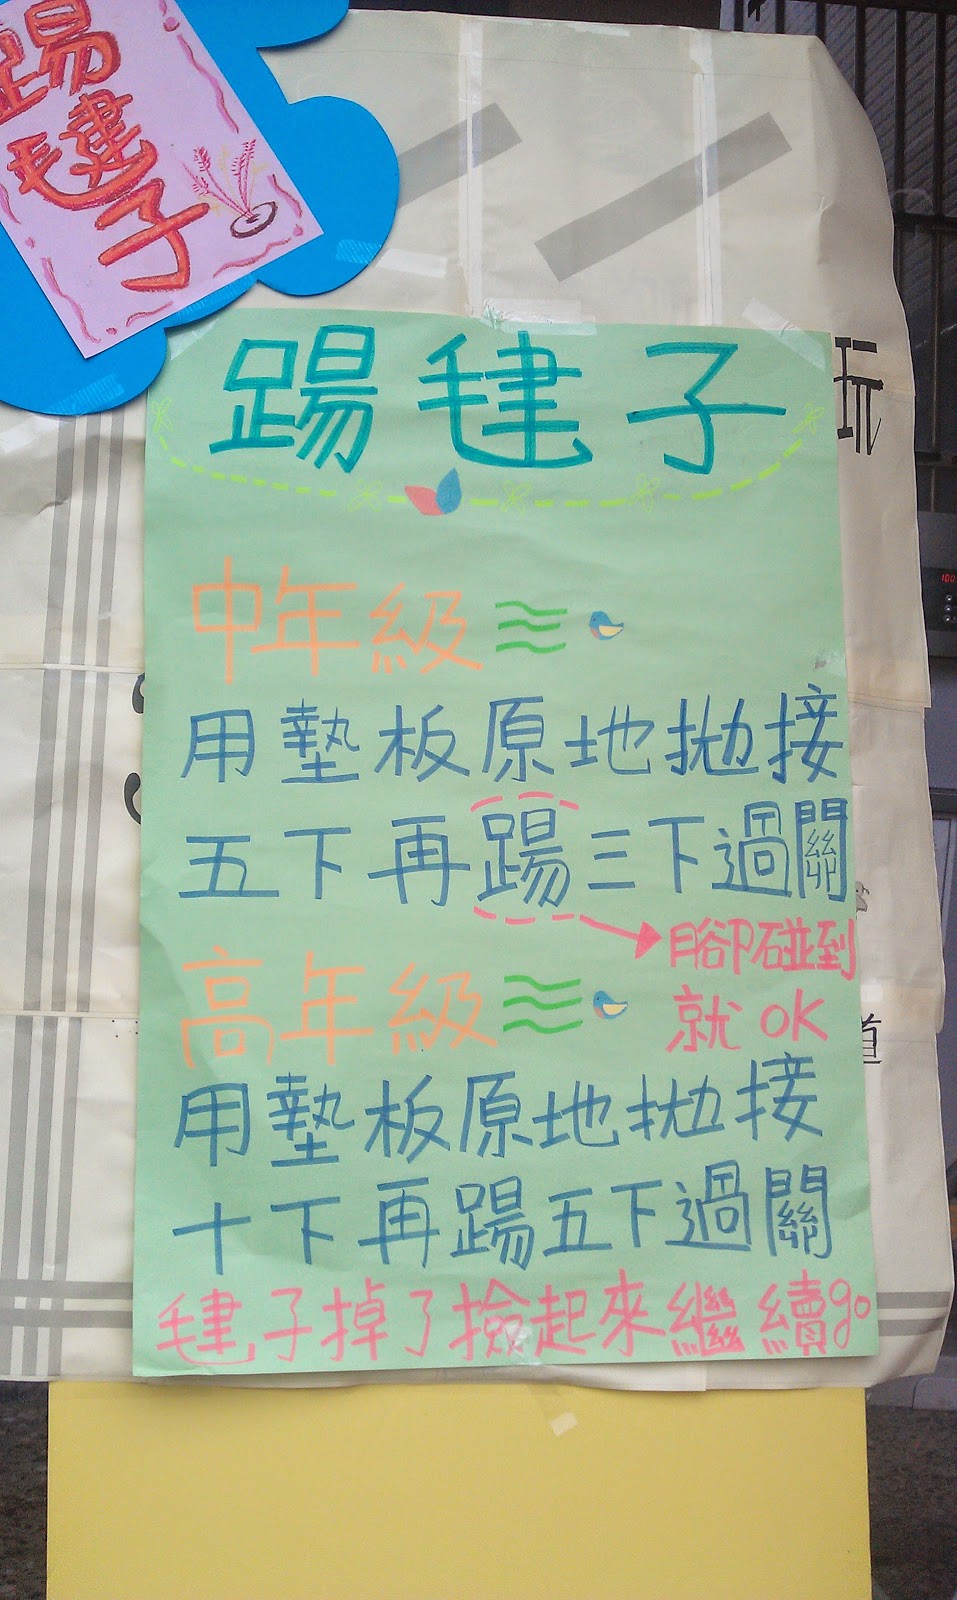 踢
毽子
踢毽子
玩
中年級
用墊板原地拋接
五下再踢三下過關
腳碰到
就OK
高年級
用墊板原地拋接
十下再踢五下過關
毽子掉了撿起來繼續go
道
100